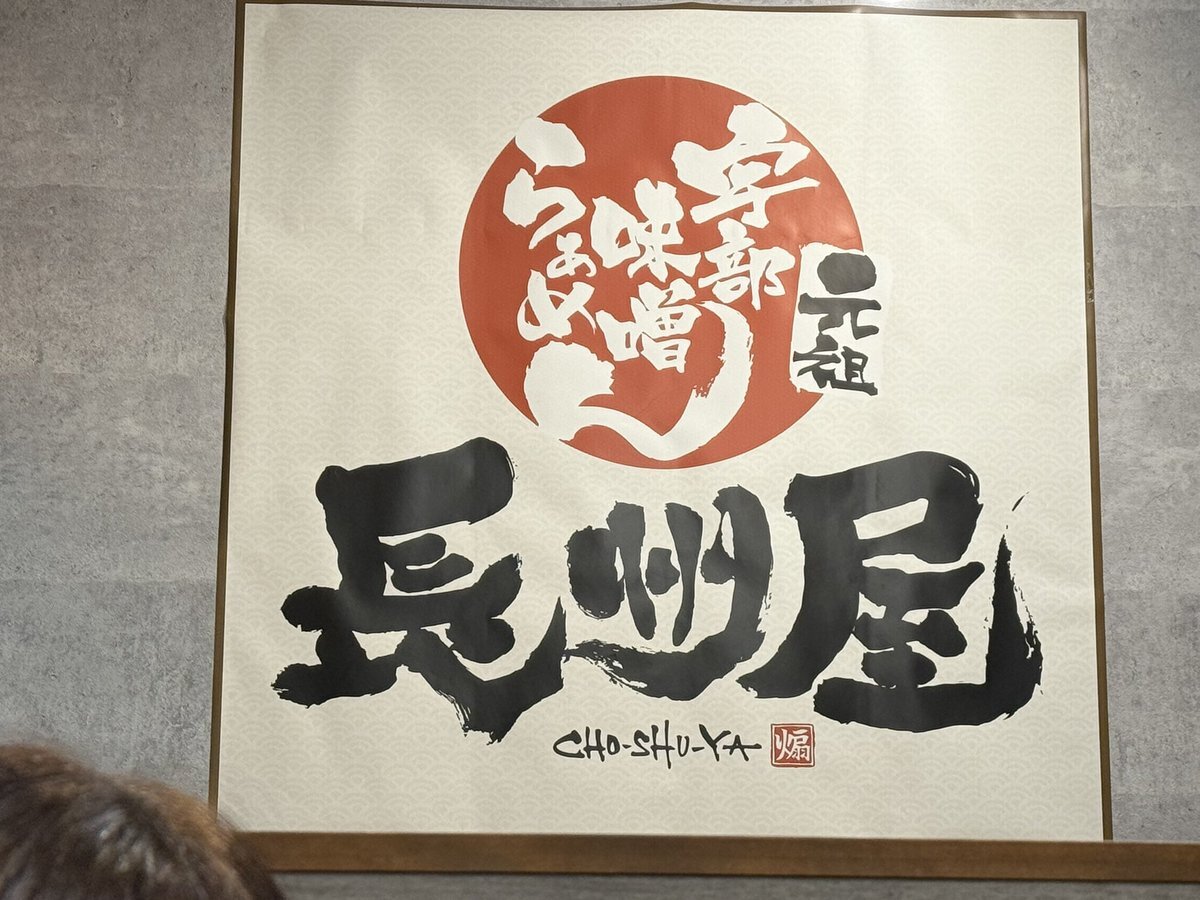 元祖
宇部
味噌
らぁめん
長州屋
CHO-SHU-YA
煽